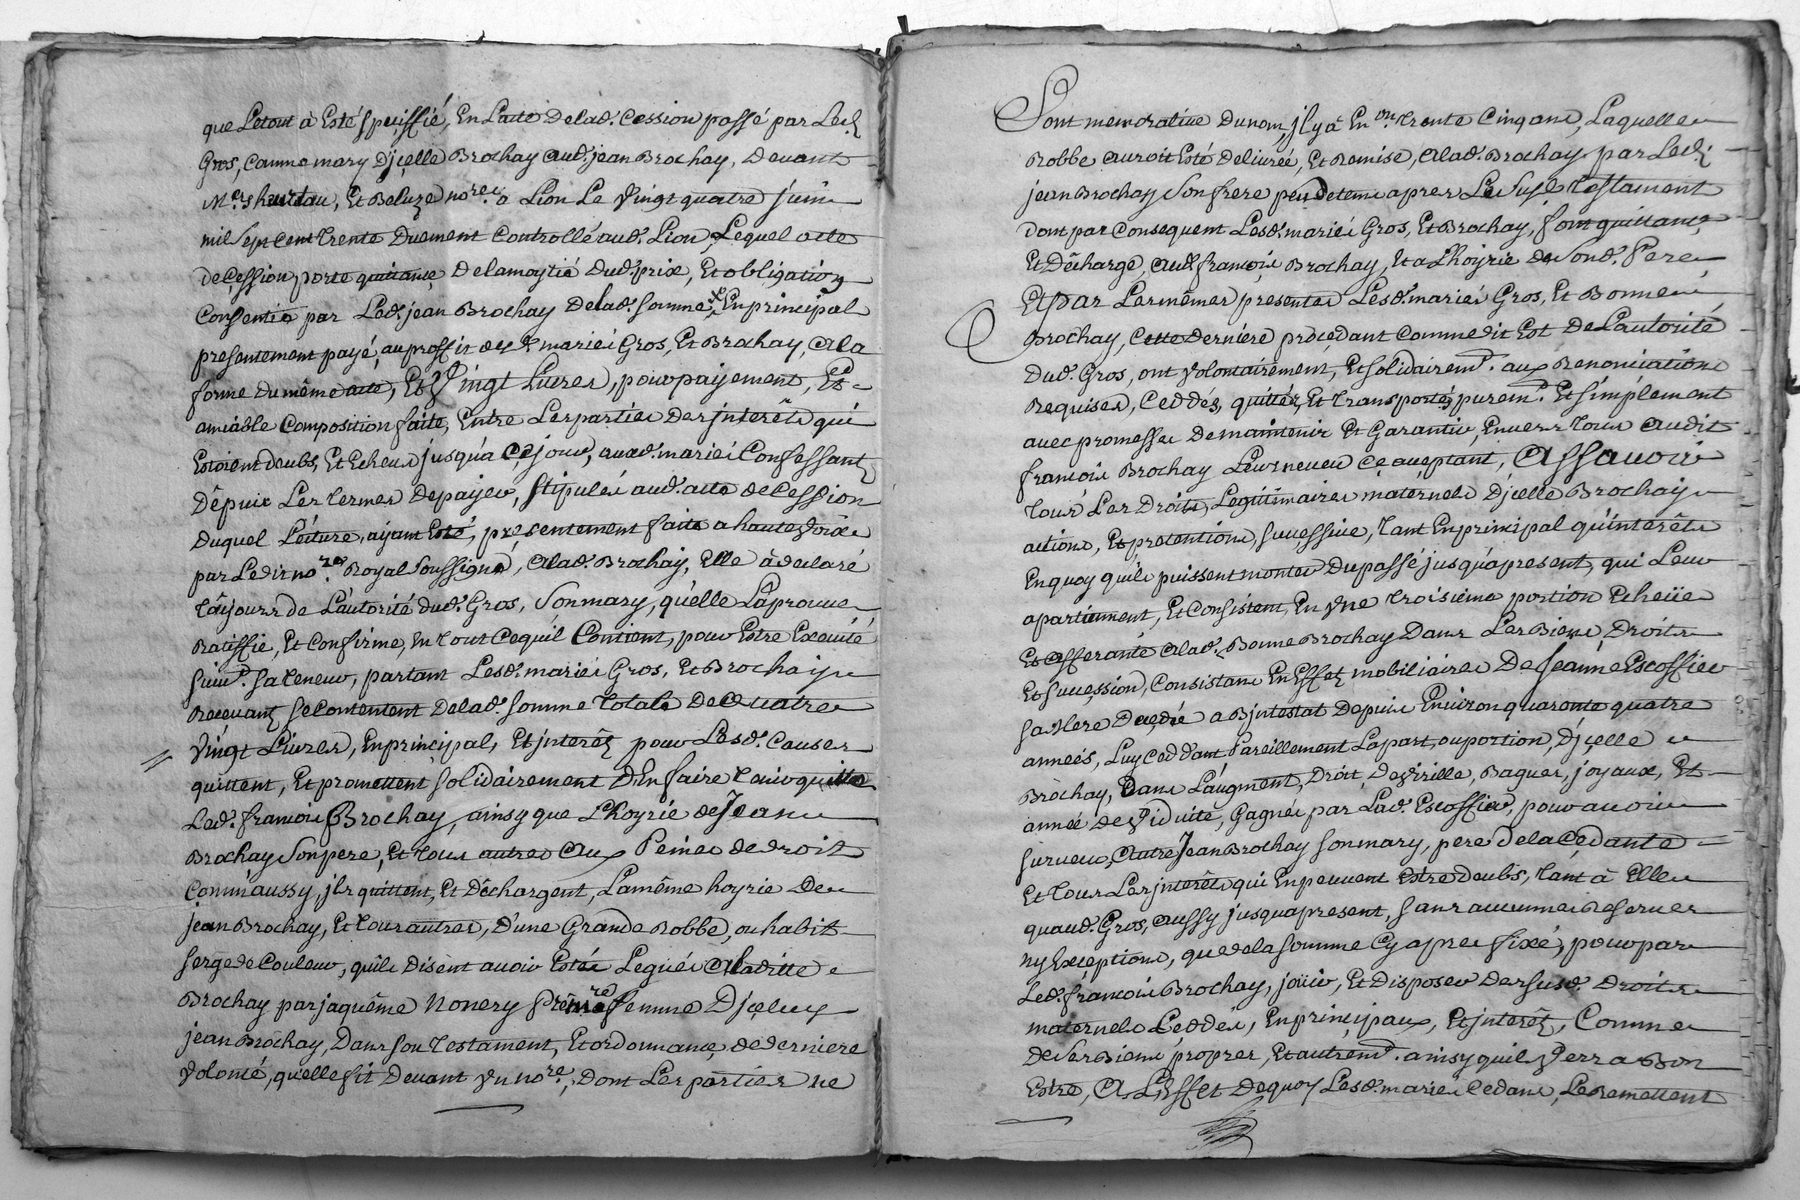 que Letout à Esté speiffié, En Lacte Delad. Cession passé par Led.
Gros, Comme mary D'jçelle Brochay aud. jean Brochay, Devant
M.rs hurdau, Et Beluze no.res a Lion Le Vingt quatre juin
mil sept cent trente Duement Controllé aud. Lion, Lequel acte
de Çession porte quittançe Delamoytié Dud. prix, Et obligation
Consentie par Led. jean Brochay Delad. somme En principal
presentement payé, au proffit des d. mariés Gros, Et Brochay, ala
forme du même acte, Et Vingt Livres, pour payement, Et
amiable Composition faite, Entre Les parties Des jnterêts qui
Estoient deubs, Et Echeus jusqu'a Çejour, auxd. mariés Confessants
Dépuis Les termes depayer, stipulés aud. acte de Cession
Duquel Leiture, ayant Esté, presentement faite a haute voix
par Ledit no.re Royal soussigné, alad. Brochay, Elle à declaré
toûjours de L'autorité dud. Gros, Son mary, qu'elle Laprouve
Ratiffie, Et Confirme, En tout Cequil Contient, pour Estre Executé
suiv.t sa teneur, partant Lesd. mariés Gros, Et Brochay
Recevants se Contentent Delad. somme totale De Quatre
Vingt Livres, En principal, Et jnterêts pour Lesd. Causes
quittent, Et promettent solidairement D'En faire tenir quitte
Led. francois Brochay, ainsy que L'hoyrie de Jean
Brochay Son pere, Et tous autres Aux Peines de droit
Comm'aussy, jls quittent, Et Déchargent, Lamême hoyrie De
jean Brochay, Et tous autres, D'une Grande Robbe, ou habit
serge de Couleur, quils Disent avoir Estée Leguée Aladitte
Brochay par jaquême Nonery Prémiere femme D'jçeluy
jean Brochay, Dans son testament, Et ordonnance de derniere
Volonté, qu'elle fit Devant un no.re, Dont Les parties ne
Sont memorative Dunom, jl y à Environ trente Cinq ans, Laquelle
Robbe auroit Esté delivrée, Et Remise, Alad. Brochay par Led.
jean Brochay Son frere peu detems apres Le Susd. testament
dont par Consequent Lesd. mariés Gros, Et Brochay, font quittance
Et Décharge, Aud. francois Brochay, Et a L'hoyrie de Sond. Pere
Et par Les mêmes presentes Lesd. mariés Gros, Et Bonne
Brochay, Cette Derniére procédant Comme dit Est De L'autorité
Dud. Gros, ont Volontairement, Et solidairem.t aux Renonciations
Requises, Ceddés, quittés, Et transportés purem.t Et simplement
avec promesse De maintenir Et Garantir, Envers tous Audit
francois Brochay Leur neveu Ce aceptant, Assavoir
tous Les Droits Legitimaires maternels D'jcelle Brochay
actions, Et pretentions, successive, tant En principal qu'interêts
En quoy qu'ils puissent monter Du passé jusqu'apresent, qui Leur
apartiennent, Et Consistent, En Une troisiéme portion Echeüe
Et Afferante Alad. Bonne Brochay Dans Les Biens, Droits
Et succession, Consistans En Effets mobiliaires De Jeanne Escoffier
sa Mere Décédée a Bjntestat Depuis Environ quarante quatre
années, Luy Ceddant Pareillement Lapart, ou portion, D'jçelle
Brochay, Dans L'augment, Droit De Virille, Bagues, joyaux, Et
année de Viduité, Gagnés par Lad. Escoffier, pour avoir
survecu, Autre Jean Brochay son mary, pere De la Cedante
Et tous Les jnterêts qui En peuvent Estre deubs, tant à Elle
quaud. Gros, Aussy jusquapresent, sans aucunnes Reserves
Ny Exceptions, que de la somme Cy apres fixé, pour par
Led. françois Brochay, joüir, Et Disposer Des susd. Droits
maternels Ceddés, En principaux, Et jnterêts, Comme
De ses Biens propres, Et autrem.t ainsy qu'il Verra Bon
Estre, A L'Effet Dequoy Lesd. mariés Cedans, Le Remettent